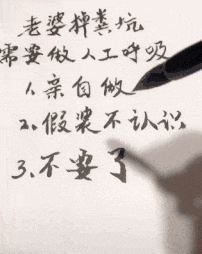 老婆掉粪坑
需要做人工呼吸
1.亲自做
2.假装不认识
3.不要了